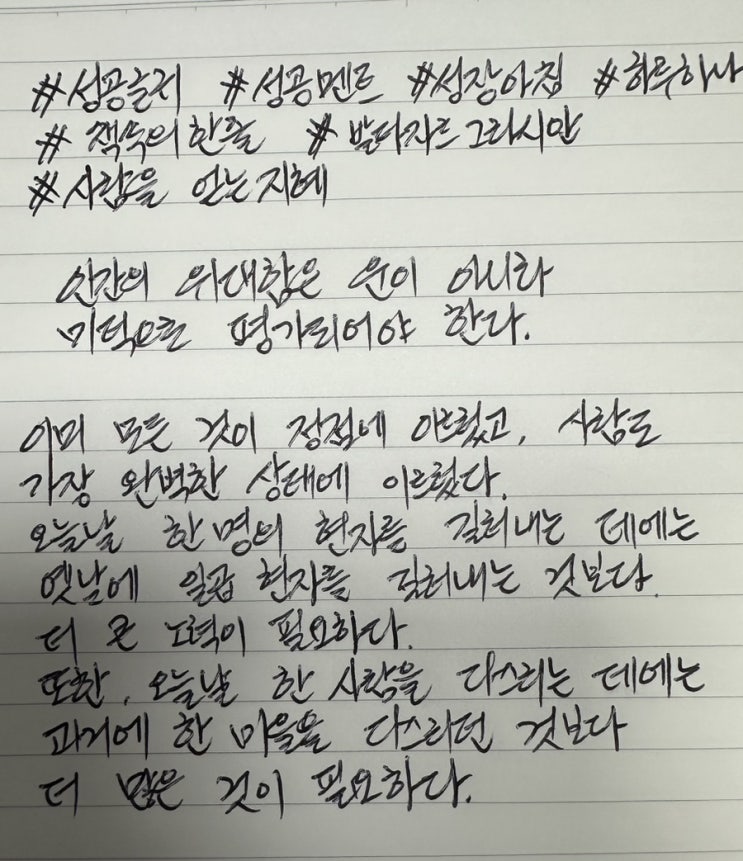 #성공글귀 #성공멘트 #성장아침 #하루하나
#책속의한줄 #발타자르그라시안
#사람을 얻는지혜
인간의 위대함은 운이 아니라
미덕으로 평가되어야 한다.
이미 모든 것이 정점에 이르렀고, 사람도
가장 완벽한 상태에 이르렀다.
오늘날 한명의 현자를 길러내는 데에는
옛날에 일곱 현자를 길러내는 것보다
더 큰 노력이 필요하다.
또한, 오늘날 한 사람을 다스리는 데에는
과거에 한 마을을 다스리던 것보다
더 많은 것이 필요하다.